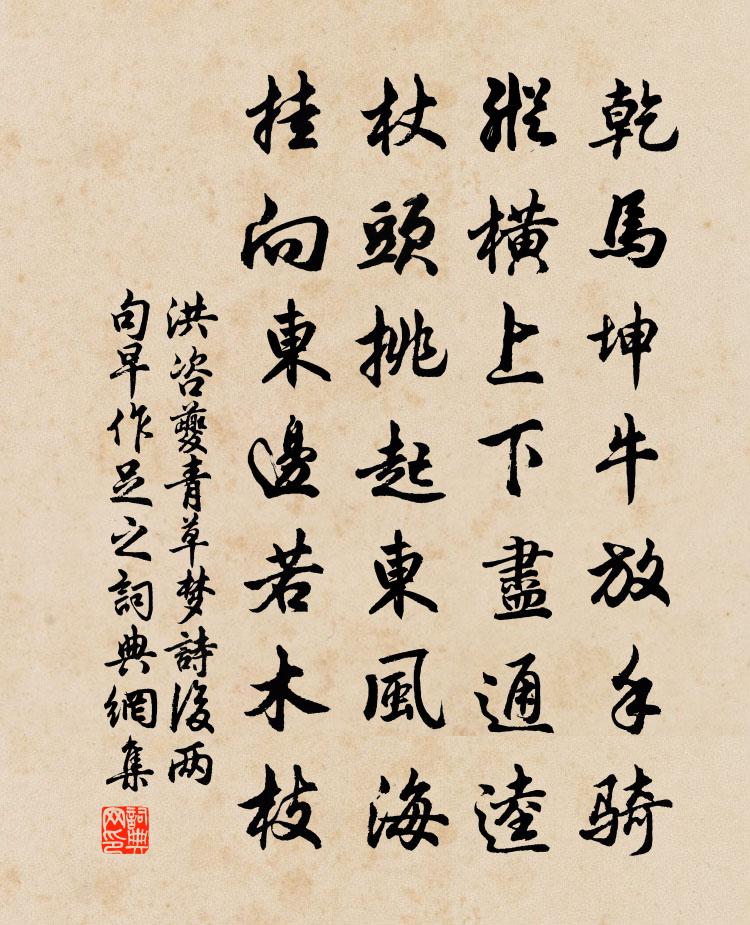 乾馬坤牛放手騎
縱横上下盡通逵
杖頭挑起東風海
挂向東邊若木枝
洪咨夔青草梦詩後两
句早作足之詞典網集
詞典网印